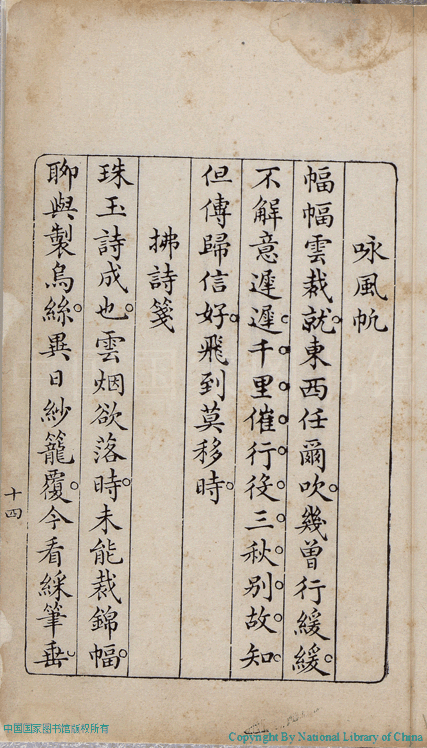 咏風帆
幅幅雲裁就。東西任爾吹。幾曾行緩緩。
不解意遲遲。千里催行役。三秋別故知。
但傳歸信好。飛到莫移時。
拂詩箋
珠玉詩成也。雲烟欲落時。未能裁錦幅。
聊與製烏絲。異日紗籠覆。今看綵筆垂。
十四
中国国家图书馆版权所有
Copyright By National Library of China